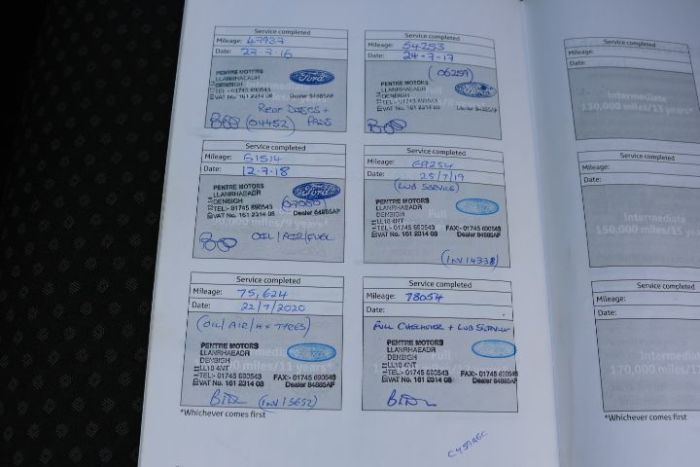 Service completed
Mileage: 47937
Date: 27-7-16
PENTRE MOTORS
LLANRHAEADR
DENBIGH
TEL:- 01745 890543
VAT No. 161 2314 08 Dealer 84885AF
Ford
Rear Discs +
(04452) Pads
Service completed
Mileage: 54253
Date: 24-7-17
(06259)
PENTRE MOTORS
LLANRHAEADR
DENBIGH
TEL:- 01745 890543
VAT No. 161 2314 08 Dealer 84885AF
Service completed
Mileage: 61514
Date: 12-7-18
PENTRE MOTORS
LLANRHAEADR
DENBIGH
TEL:- 01745 890543
VAT No. 161 2314 08 Dealer 84885AF
Ford
OIL/AIR/FUEL
Service completed
Mileage: 69254
Date: 25/7/19
(LUB SERVICE)
PENTRE MOTORS
LLANRHAEADR
DENBIGH
LL16 4NT
TEL:- 01745 890543 FAX:- 01745 890543
VAT No. 161 2314 08 Dealer 84885AF
(INV 14338)
Service completed
Mileage: 75,624
Date: 22/7/2020
(OIL/AIR/4x TYRES)
PENTRE MOTORS
LLANRHAEADR
DENBIGH
LL16 4NT
TEL:- 01745 890543 FAX:- 01745 890543
VAT No. 161 2314 08 Dealer 84885AF
(INV 15652)
*Whichever comes first
Service completed
Mileage: 78054
Date:
FULL CHECKOVER + LUB SERVICE
PENTRE MOTORS
LLANRHAEADR
DENBIGH
LL16 4NT
TEL:- 01745 890543 FAX:- 01745 890543
VAT No. 161 2314 08 Dealer 84885AF
Service completed
Mileage:
Date:
Intermediate
130,000 miles/13 years*
Service completed
Mileage:
Date:
Intermediate
150,000 miles/15 years*
Service completed
Mileage:
Date:
Intermediate
170,000 miles/17
*Whichever comes first